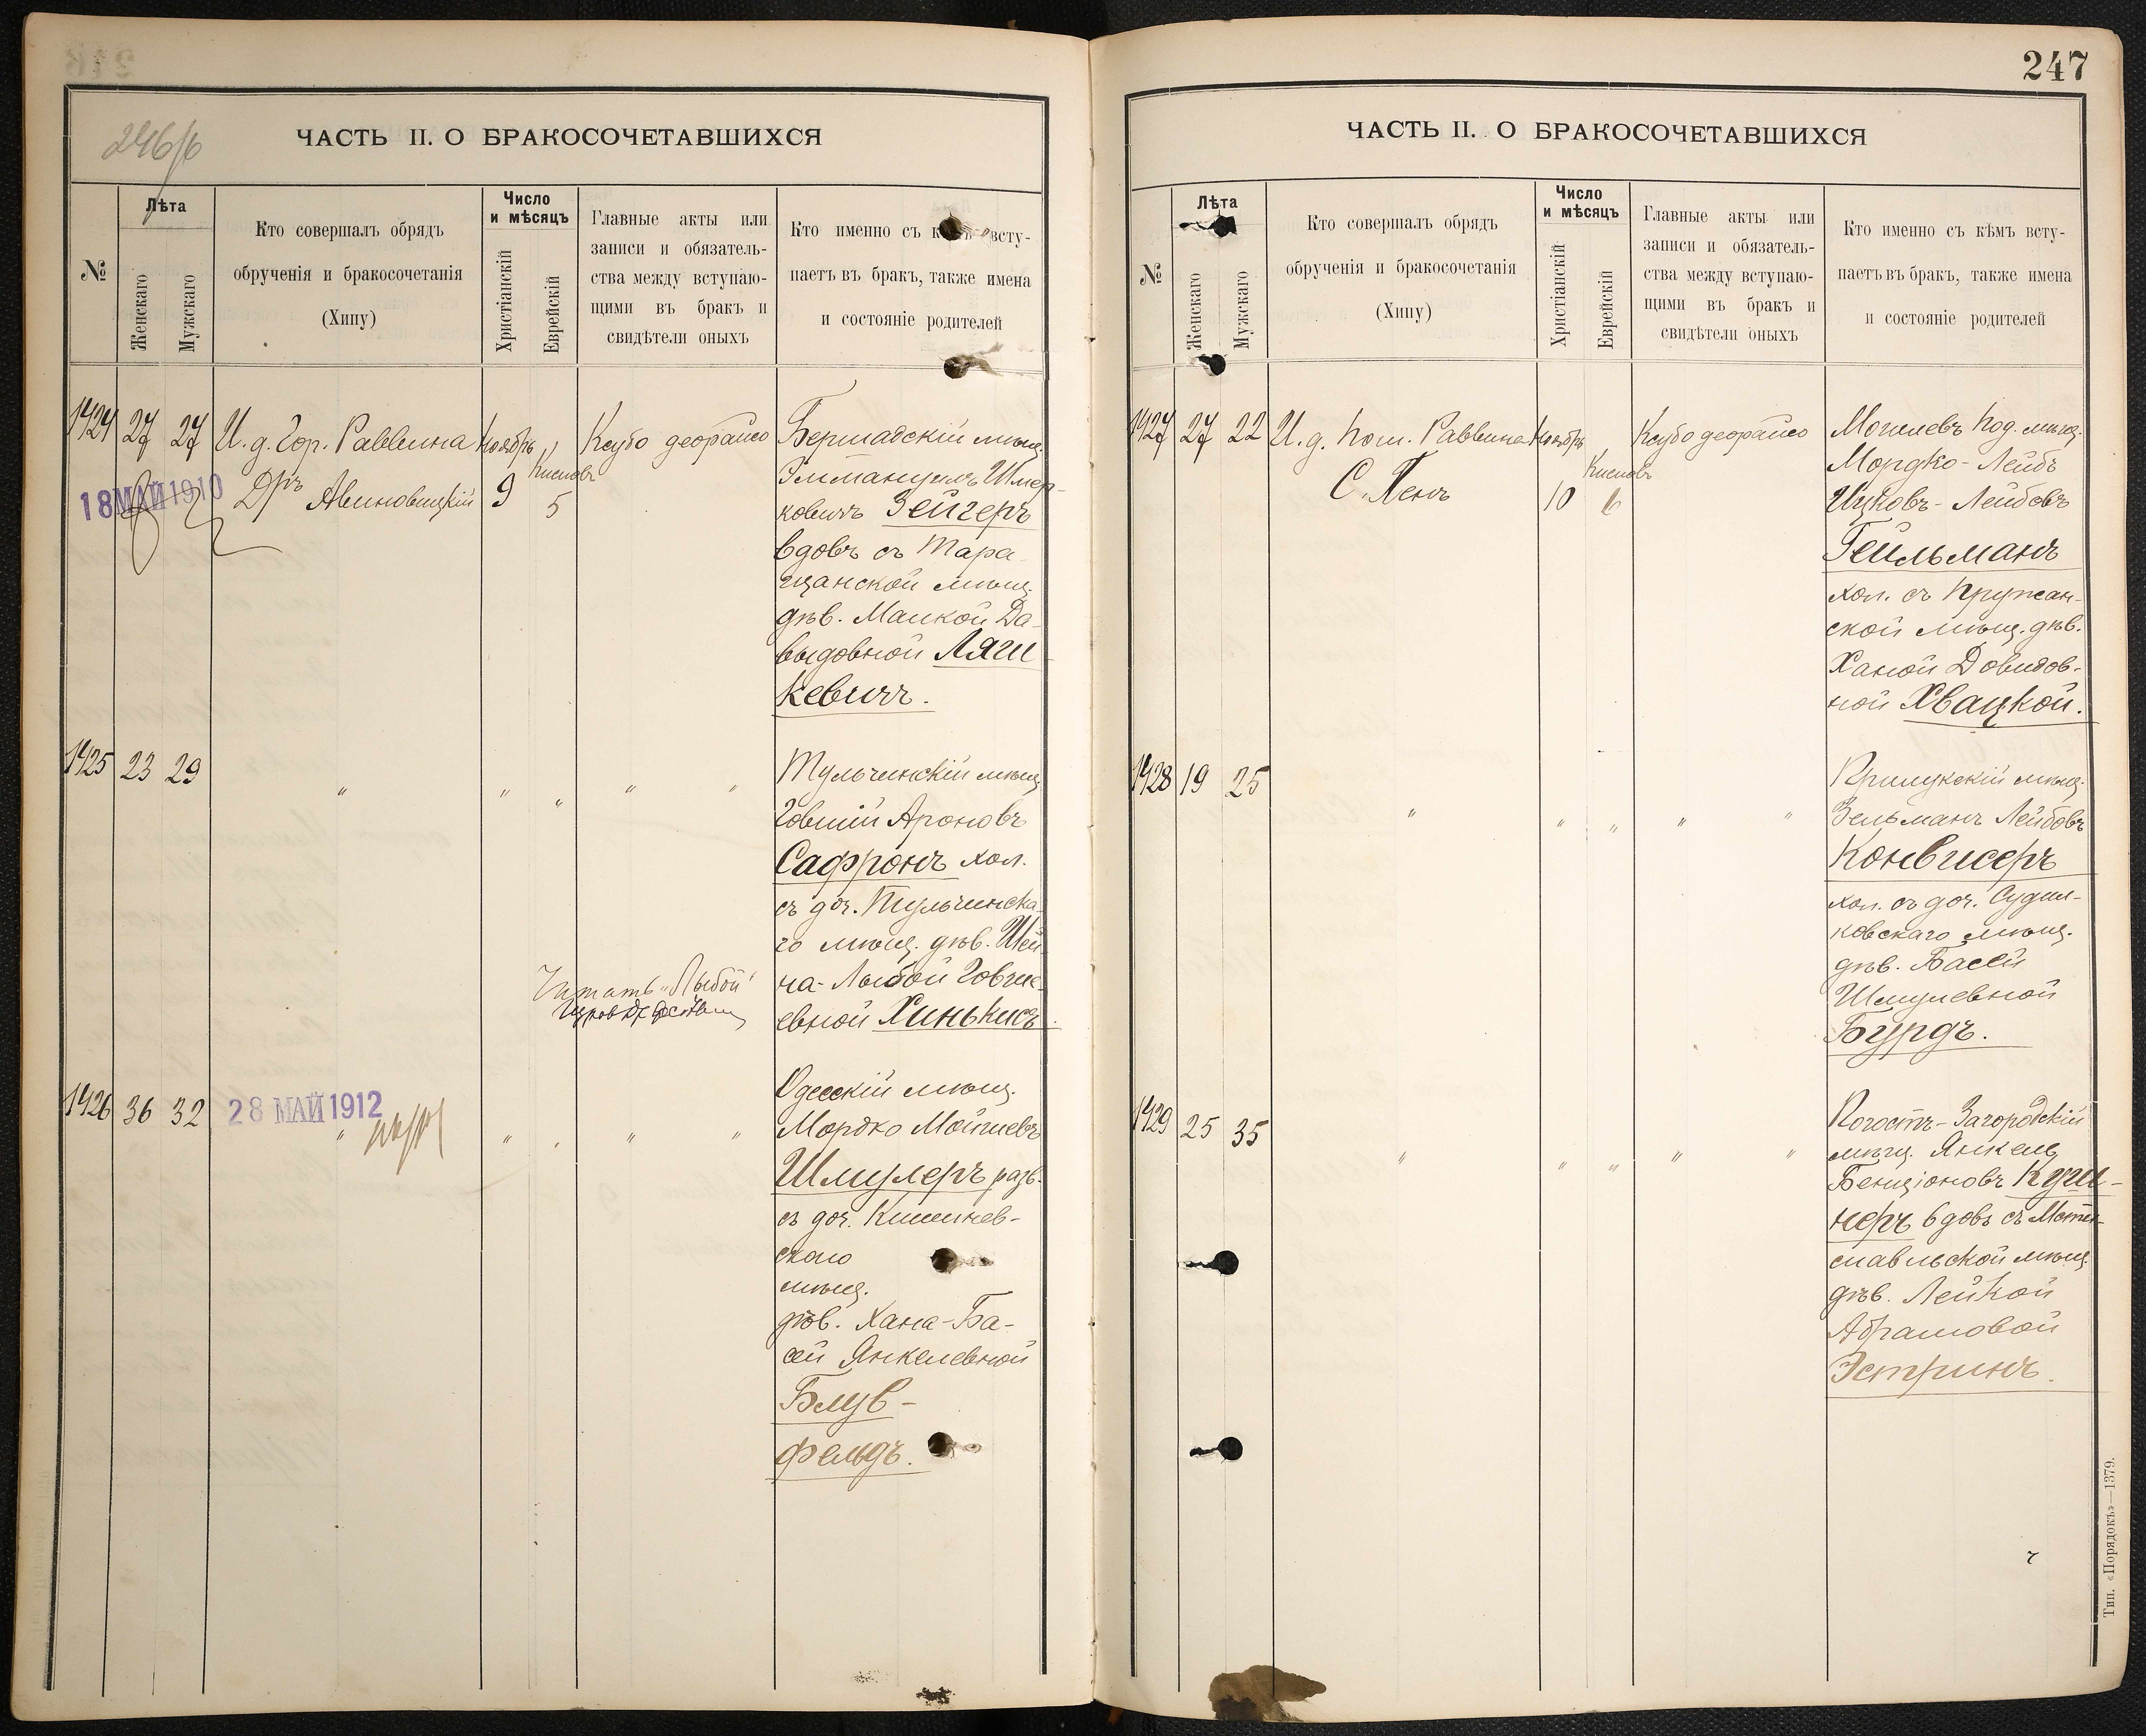 246/б
ЧАСТЬ II. О БРАКОСОЧЕТАВШИХСЯ
№
Лѣта
Женскаго
Мужскаго
Кто совершалъ обрядъ
обрученія и бракосочетанія
(Хипу)
Число
и мѣсяцъ
Христіанскій
Еврейскій
Главные акты или
записи и обязатель-
ства между вступаю-
щими въ бракъ и
свидѣтели оныхъ
Кто именно съ всту-
паетъ въ бракъ, также имена
и состояніе родителей
1424 27 27 И. д. Гор. Раввина Ноябрь Ксубо деорайсо
18 МАЙ 1910
Дръ Авиновицкій 9 Кислевъ 5
Бершадскій мѣщ.
Эммануилъ Шмер-
ковичъ Зейгеръ
вдовъ съ Тара-
щанской мѣщ.
дѣв. Маикой Да-
выдовной Ляш
кевичъ.
1425 23 29 " " " " "
Тульчинскій мѣщ.
Іовшій Ароновъ
Сафронъ хол.
съ доч. Тульчинска
го мѣщ. дѣв. Шей
на-Лыбой Іовши
евной Хинькисъ.
Читать "Лыбой"
1426 36 32 " " " " "
28 МАЙ 1912
Одесскій мѣщ.
Мордко Мойшевъ
Шмулеръ разв.
съ доч. Кишинев-
скаго
мѣщ.
дѣв. Хана-Ба-
сей Янкелевной
Блув-
фельдъ.
247
ЧАСТЬ II. О БРАКОСОЧЕТАВШИХСЯ
№
Лѣта
Женскаго
Мужскаго
Кто совершалъ обрядъ
обрученія и бракосочетанія
(Хипу)
Число
и мѣсяцъ
Христіанскій
Еврейскій
Главные акты или
записи и обязатель-
ства между вступаю-
щими въ бракъ и
свидѣтели оныхъ
Кто именно съ кѣмъ всту-
паетъ въ бракъ, также имена
и состояніе родителей
1427 27 22 И. д. Пом. Раввина Ноябрь Ксубо деорайсо
С. Пенъ 10 Кислевъ 6
Могилевъ Под. мѣщ.
Мордко-Лейбъ
Ицковъ-Лейбовъ
Гейльманъ
хол. съ Пружан-
ской мѣщ. дѣв.
Ханой Довидов-
ной Хвацкой.
1428 19 25 " " " " "
Прилукскій мѣщ.
Зельманъ Лейбовъ
Конвисеръ
хол. съ доч. Судил-
ковскаго мѣщ.
дѣв. Басей
Шмулевной
Бурдъ.
1429 25 35 " " " " "
Погостъ-Загородскій
мѣщ. Янкель
Бенціоновъ Куш-
неръ вдовъ съ Мсти-
славльской мѣщ.
дѣв. Лейкой
Абрамовой
Эстринъ.
Тип. «Порядокъ»—1379.